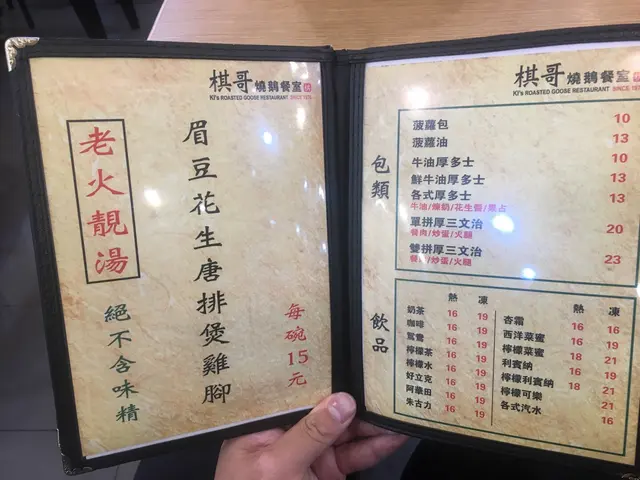 棋哥燒鵝餐室
Ki's ROASTED GOOSE RESTAURANT SINCE 1978
老火靚湯
絕不含味精
眉豆花生唐排煲雞腳
每碗15元
棋哥燒鵝餐室
Ki's ROASTED GOOSE RESTAURANT SINCE 197
包類
菠蘿包 10
菠蘿油 13
牛油厚多士 10
鮮牛油厚多士 13
各式厚多士 13
牛油/煉奶/花生醬/果占
單拼厚三文治 20
餐肉/炒蛋/火腿
雙拼厚三文治 23
餐肉/炒蛋/火腿
飲品
熱 凍
奶茶 16 19
咖啡 16 19
鴛鴦 16 19
檸檬茶 16 19
檸檬水 16 19
好立克 16 19
阿華田 16 19
朱古力 16 19
熱 凍
杏霜 16
西洋菜蜜 16
檸檬菜蜜 18 21
利賓納 16 19
檸檬利賓納 18 21
檸檬可樂 21
各式汽水 16